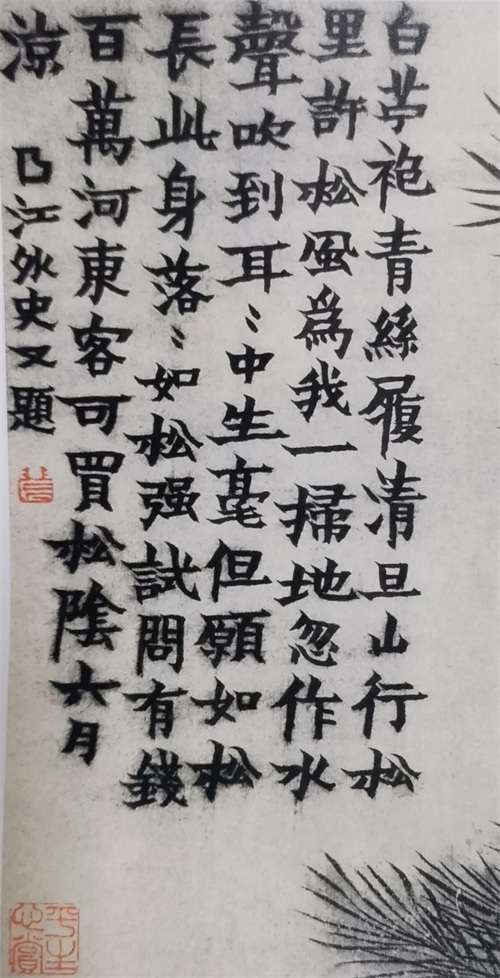 白苧袍青絲履清旦山行松
里許松風爲我一掃地忽作水
聲吹到耳〻中生毫但願如松
長此身落〻如松强試問有錢
百萬河東客可買松陰六月
涼
乃江外史又題